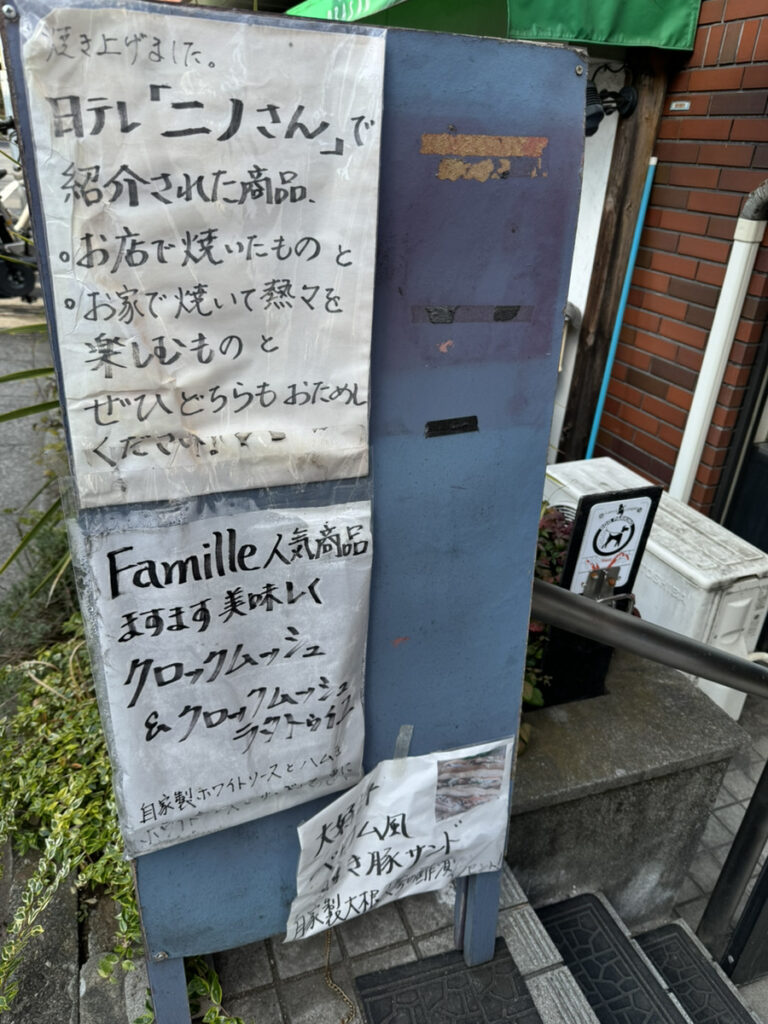 焼き上げました。
日テレ「ニノさん」で
紹介された商品、
。お店で焼いたものと
。お家で焼いて熱々を
楽しむものと
ぜひどちらもおためし
ください!
Famille人気商品
ますます美味しく
クロックムッシュ
&クロックムッシュ
ラタトゥイユ
自家製ホワイトソースとハムを
大好評
ベトナム風
豚サンド
自家製大根